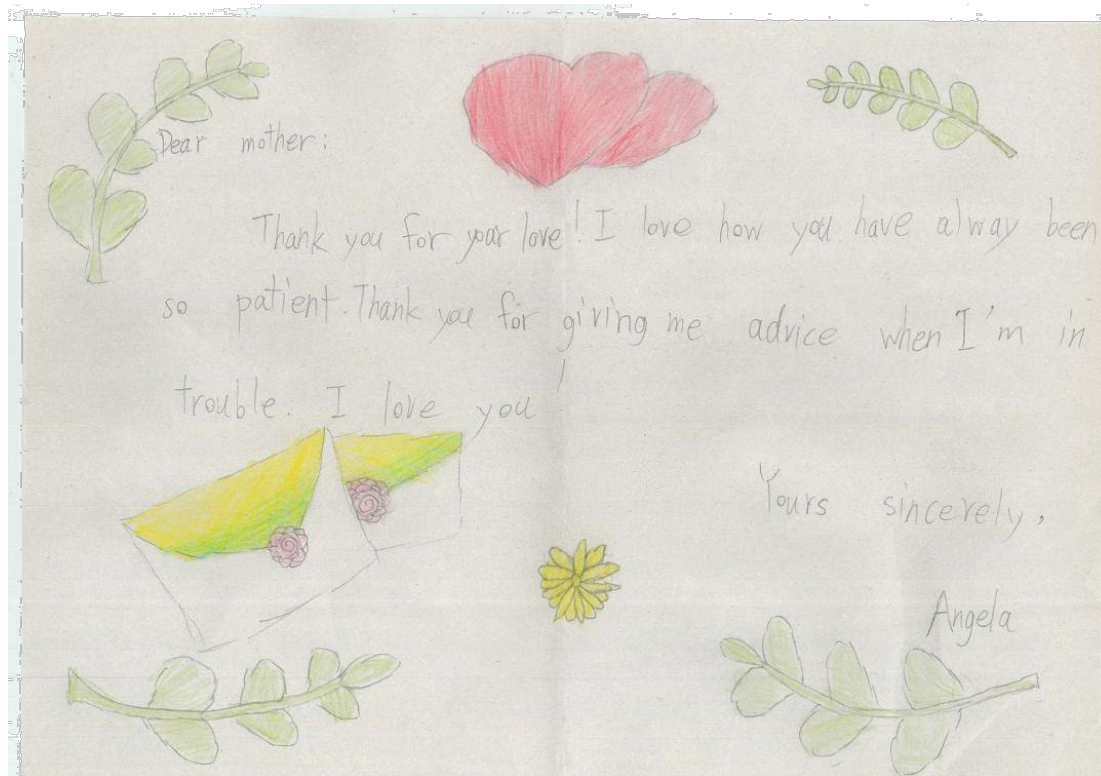 Dear mother:
Thank you for your love! I love how you have alway been
so patient. Thank you for giving me advice when I'm in
trouble. I love you
Yours sincerely,
Angela